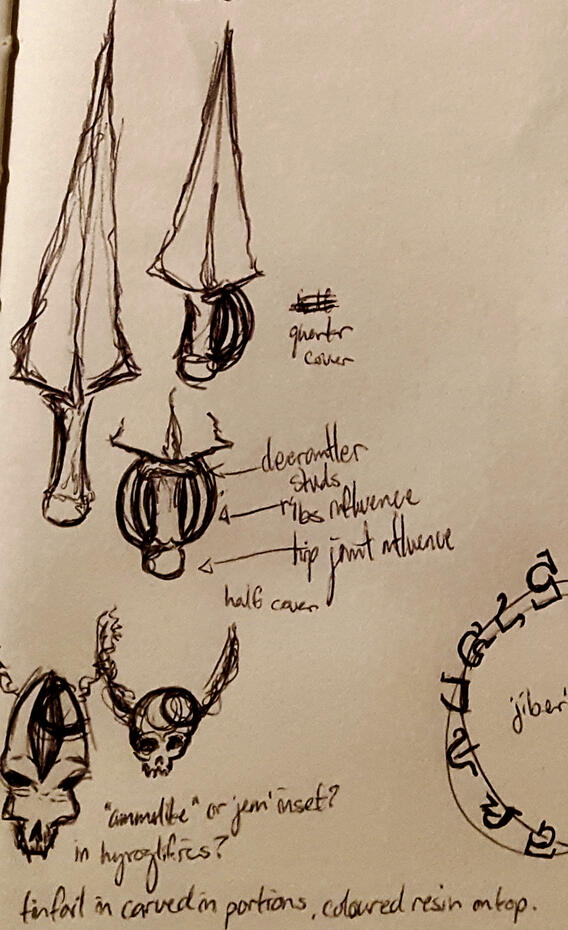 quarter
cover
deerantler
studs
ribs influence
hip joint influence
half cover
'jiber'
"ammulite" or 'jem' inset?
in hyroglifics?
tinfoil in carved in portions, coloured resin on top.